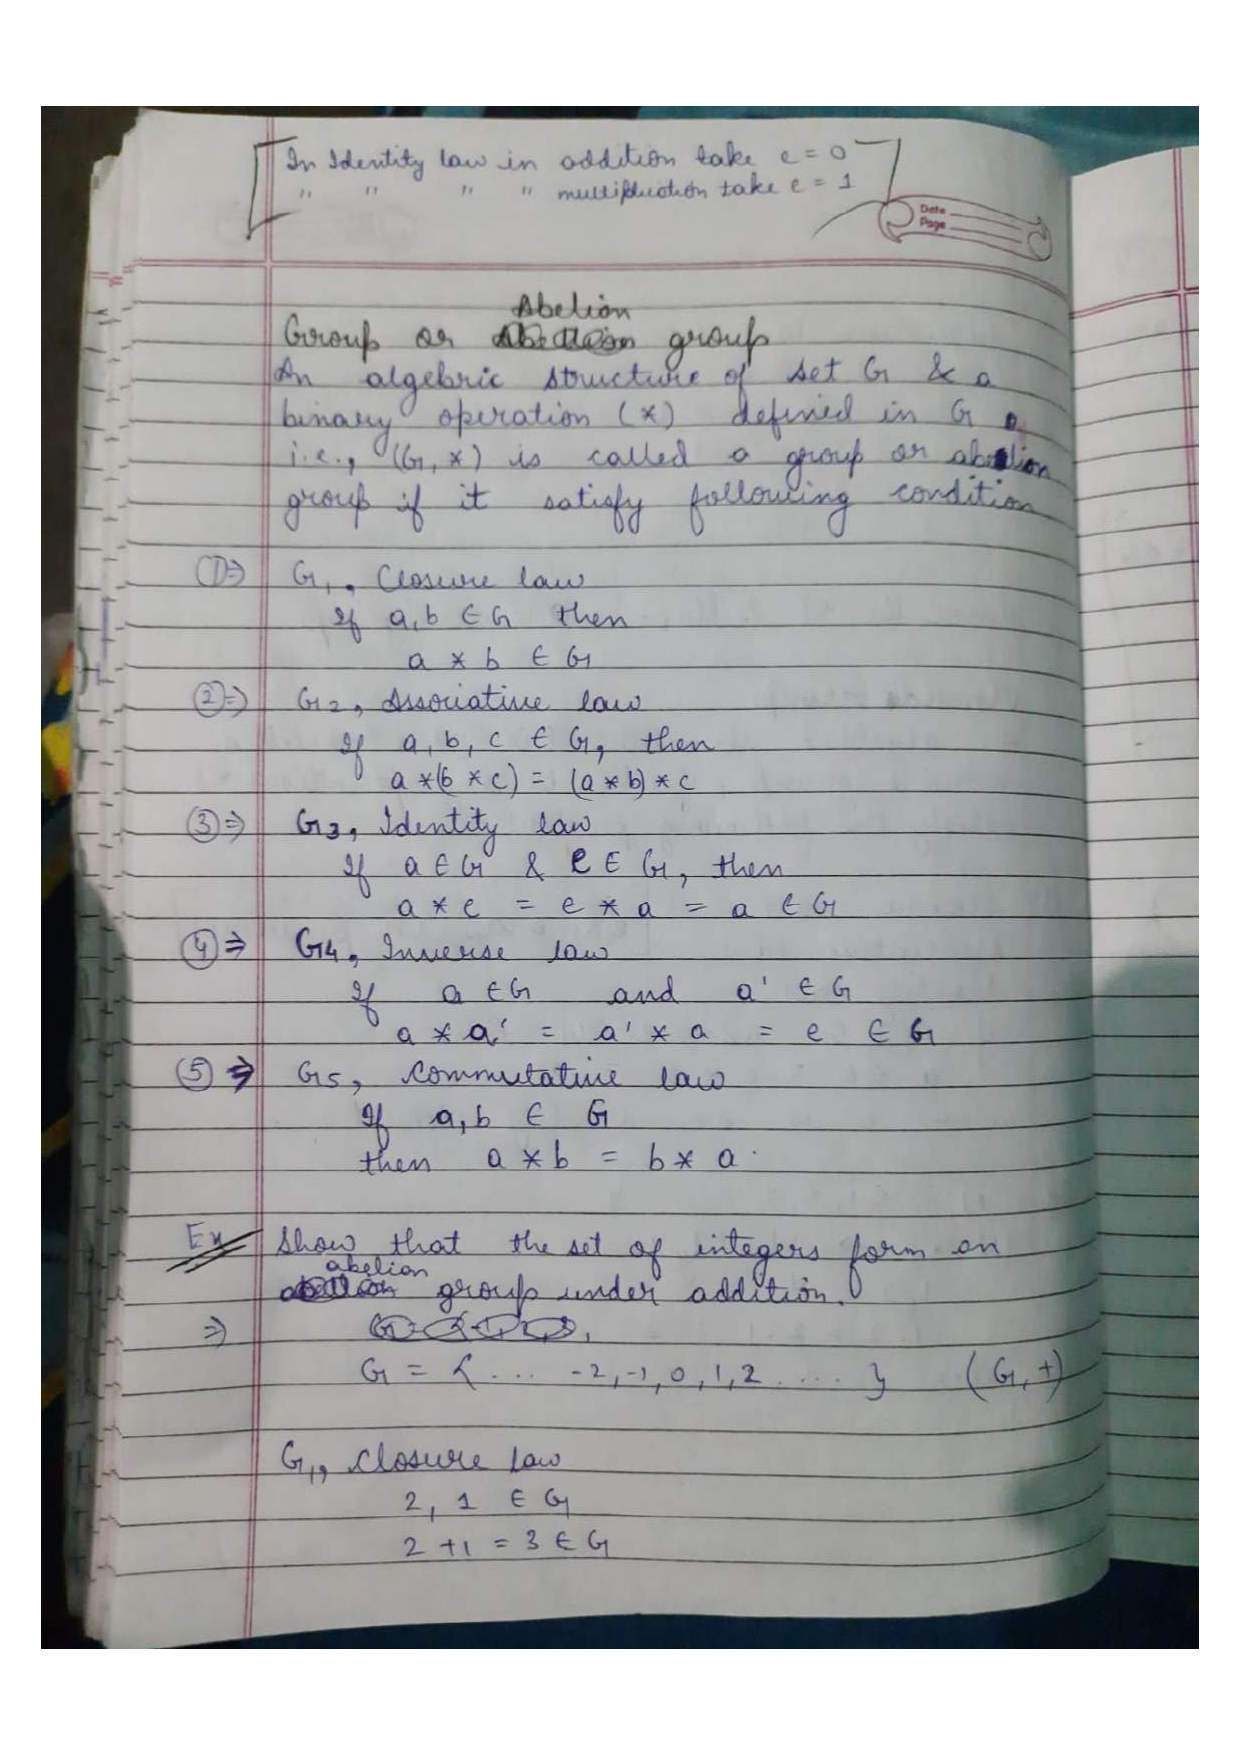 In Identity law in addition take e = 0
" " " " multiplication take e = 1
Date
Page
Abelion
Group or group
An algebric structure of set G & a
binary operation (*) defined in G
i.e., (G, *) is called a group or abelion
group if it satisfy following condition
①⇒ G1, Closure law
If a, b ∈ G then
a * b ∈ G
②⇒ G2, Associative law
If a, b, c ∈ G, then
a *(b * c) = (a * b) * c
③⇒ G3, Identity law
If a ∈ G & e ∈ G, then
a * e = e * a = a ∈ G
④⇒ G4, Inverse law
If a ∈ G and a' ∈ G
a * a' = a' * a = e ∈ G
⑤⇒ G5, Commutative law
If a, b ∈ G
then a * b = b * a.
Ex Show that the set of integers form an
abelion
group under addition.
⇒
G = { .... -2, -1, 0, 1, 2 .... } (G, +)
G1, Closure law
2, 1 ∈ G
2 + 1 = 3 ∈ G